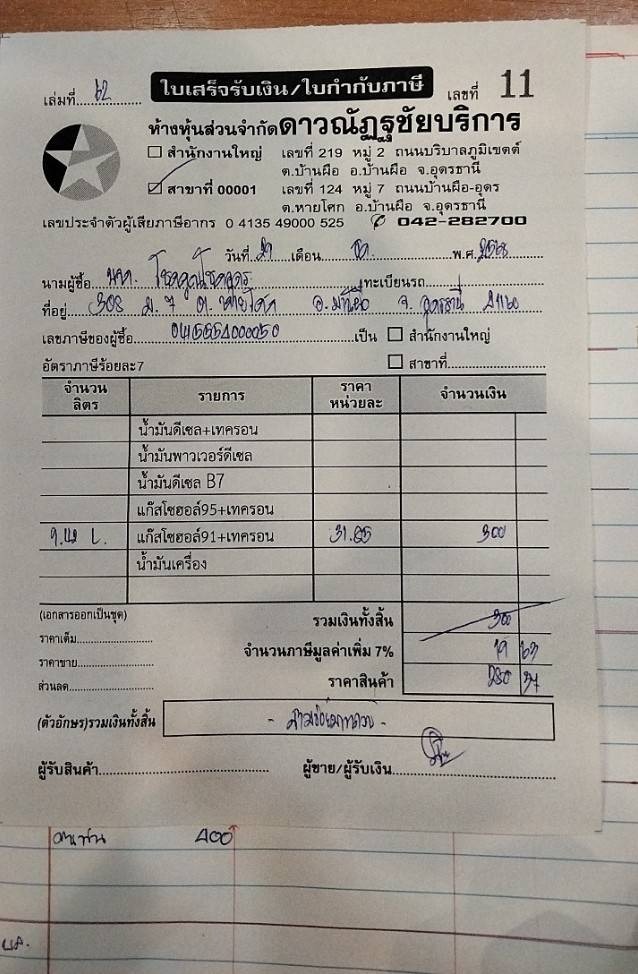 เล่มที่ 62 ใบเสร็จรับเงิน/ใบกำกับภาษี เลขที่ 11
ห้างหุ้นส่วนจำกัดดาวณัฏฐชัยบริการ
สำนักงานใหญ่ เลขที่ 219 หมู่ 2 ถนนบริบาลภูมิเขตต์
ต.บ้านผือ อ.บ้านผือ จ.อุดรธานี
สาขาที่ 00001 เลขที่ 124 หมู่ 7 ถนนบ้านผือ-อุดร
ต.หายโศก อ.บ้านผือ จ.อุดรธานี
เลขประจำตัวผู้เสียภาษีอากร 0 4135 49000 525 042-282700
วันที่ 29 เดือน พ.ศ. 2568
นามผู้ซื้อ ทะเบียนรถ
ที่อยู่ 308 ม. 7 ต. หายโศก อ. บ้านผือ จ. อุดรธานี 41160
เลขภาษีของผู้ซื้อ เป็น สำนักงานใหญ่
อัตราภาษีร้อยละ7 สาขาที่
จำนวนลิตร รายการ ราคาหน่วยละ จำนวนเงิน
น้ำมันดีเซล+เทครอน
น้ำมันพาวเวอร์ดีเซล
น้ำมันดีเซล B7
แก๊สโซฮอล์95+เทครอน
9.42 L. แก๊สโซฮอล์91+เทครอน 31.85 300
น้ำมันเครื่อง
(เอกสารออกเป็นชุด) รวมเงินทั้งสิ้น 300
ราคาเต็ม จำนวนภาษีมูลค่าเพิ่ม 7% 19 63
ราคาขาย ราคาสินค้า 280 37
ส่วนลด
(ตัวอักษร)รวมเงินทั้งสิ้น - สามร้อยบาทถ้วน -
ผู้รับสินค้า ผู้ขาย/ผู้รับเงิน
400